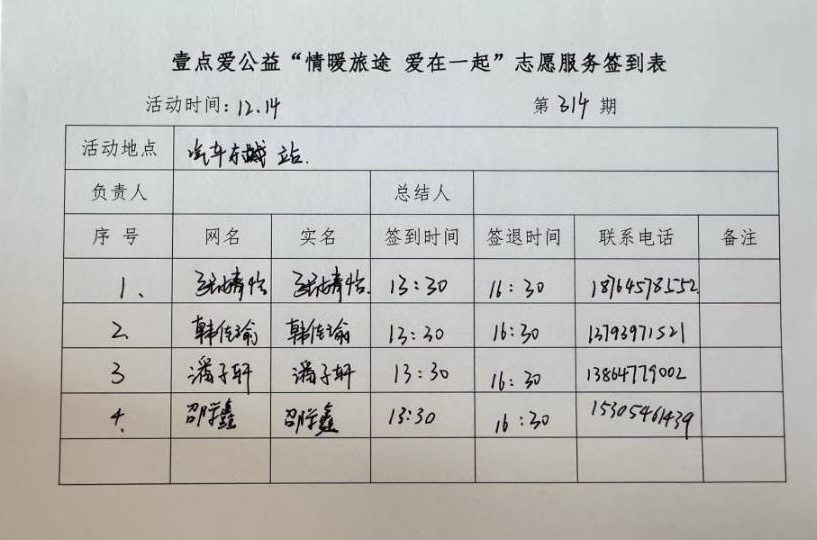 壹点爱公益“情暖旅途 爱在一起”志愿服务签到表
活动时间：12.14 第 314 期
活动地点 汽车东城站.
负责人 总结人
序号 网名 实名 签到时间 签退时间 联系电话 备注
1、 婧怡 婧怡. 13:30 16:30 18764578552
2. 韩佳瑜 韩佳瑜 13:30 16:30 13793971521
3 潘子轩 潘子轩 13:30 16:30 13864779002
4. 邵学鑫 邵学鑫 13:30 16:30 15305461439